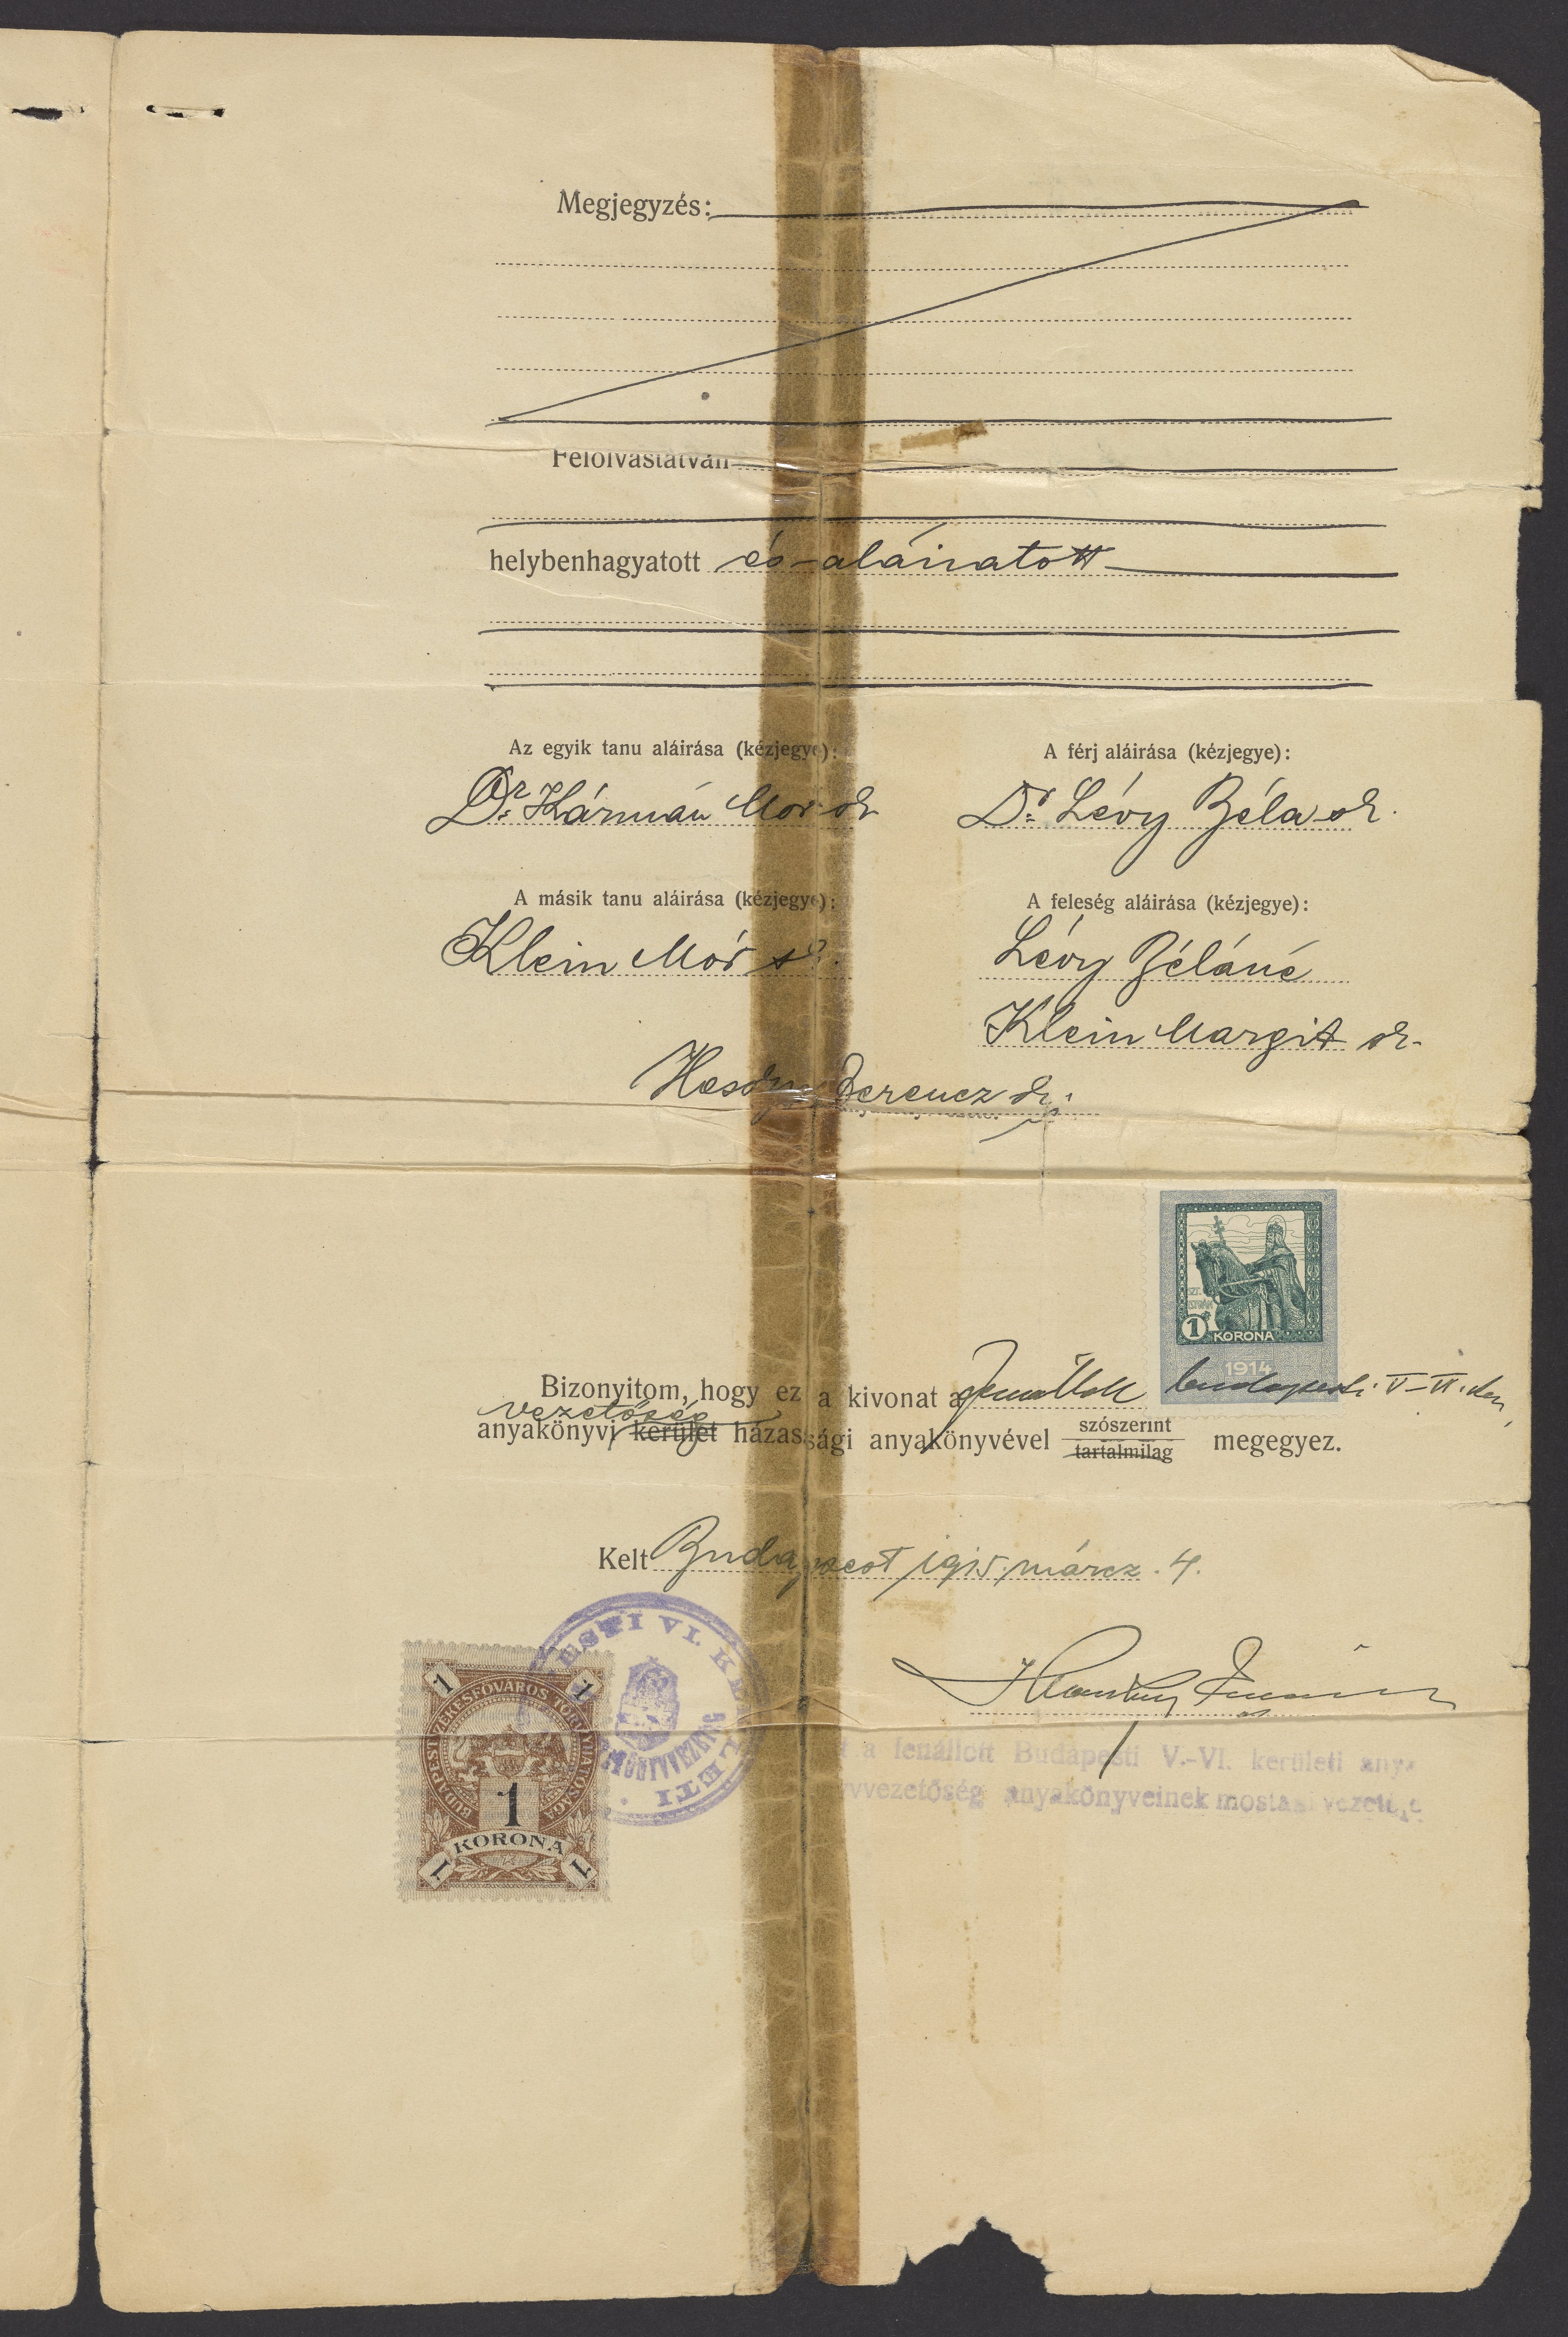 Megjegyzés:
Felolvastatván
helybenhagyatott és aláiratott
Az egyik tanu aláirása (kézjegye):
A férj aláirása (kézjegye):
Dr. Kármán Mór sk
Dr. Lévy Béla sk.
A másik tanu aláirása (kézjegye):
A feleség aláirása (kézjegye):
Klein Mór sk.
Lévy Béláné
Klein Margit sk.
Ferencz sk.
SZT. ISTVÁN
1 KORONA
1914
Bizonyitom, hogy ez a kivonat a fennállott budapesti V-VI. ker.
vezetőség
anyakönyvi kerület házassági anyakönyvével szószerint tartalmilag megegyez.
Kelt Budapest 1915. márcz. 4.
BUDAPEST SZÉKESFŐVÁROS TÖRVHATÓSÁGA
1 1
1
KORONA
1 1
ESTI VI. KERÜLETI
a fenállott Budapesti V.-VI. kerületi anya
yvvezetőség anyakönyveinek mostani vezetője